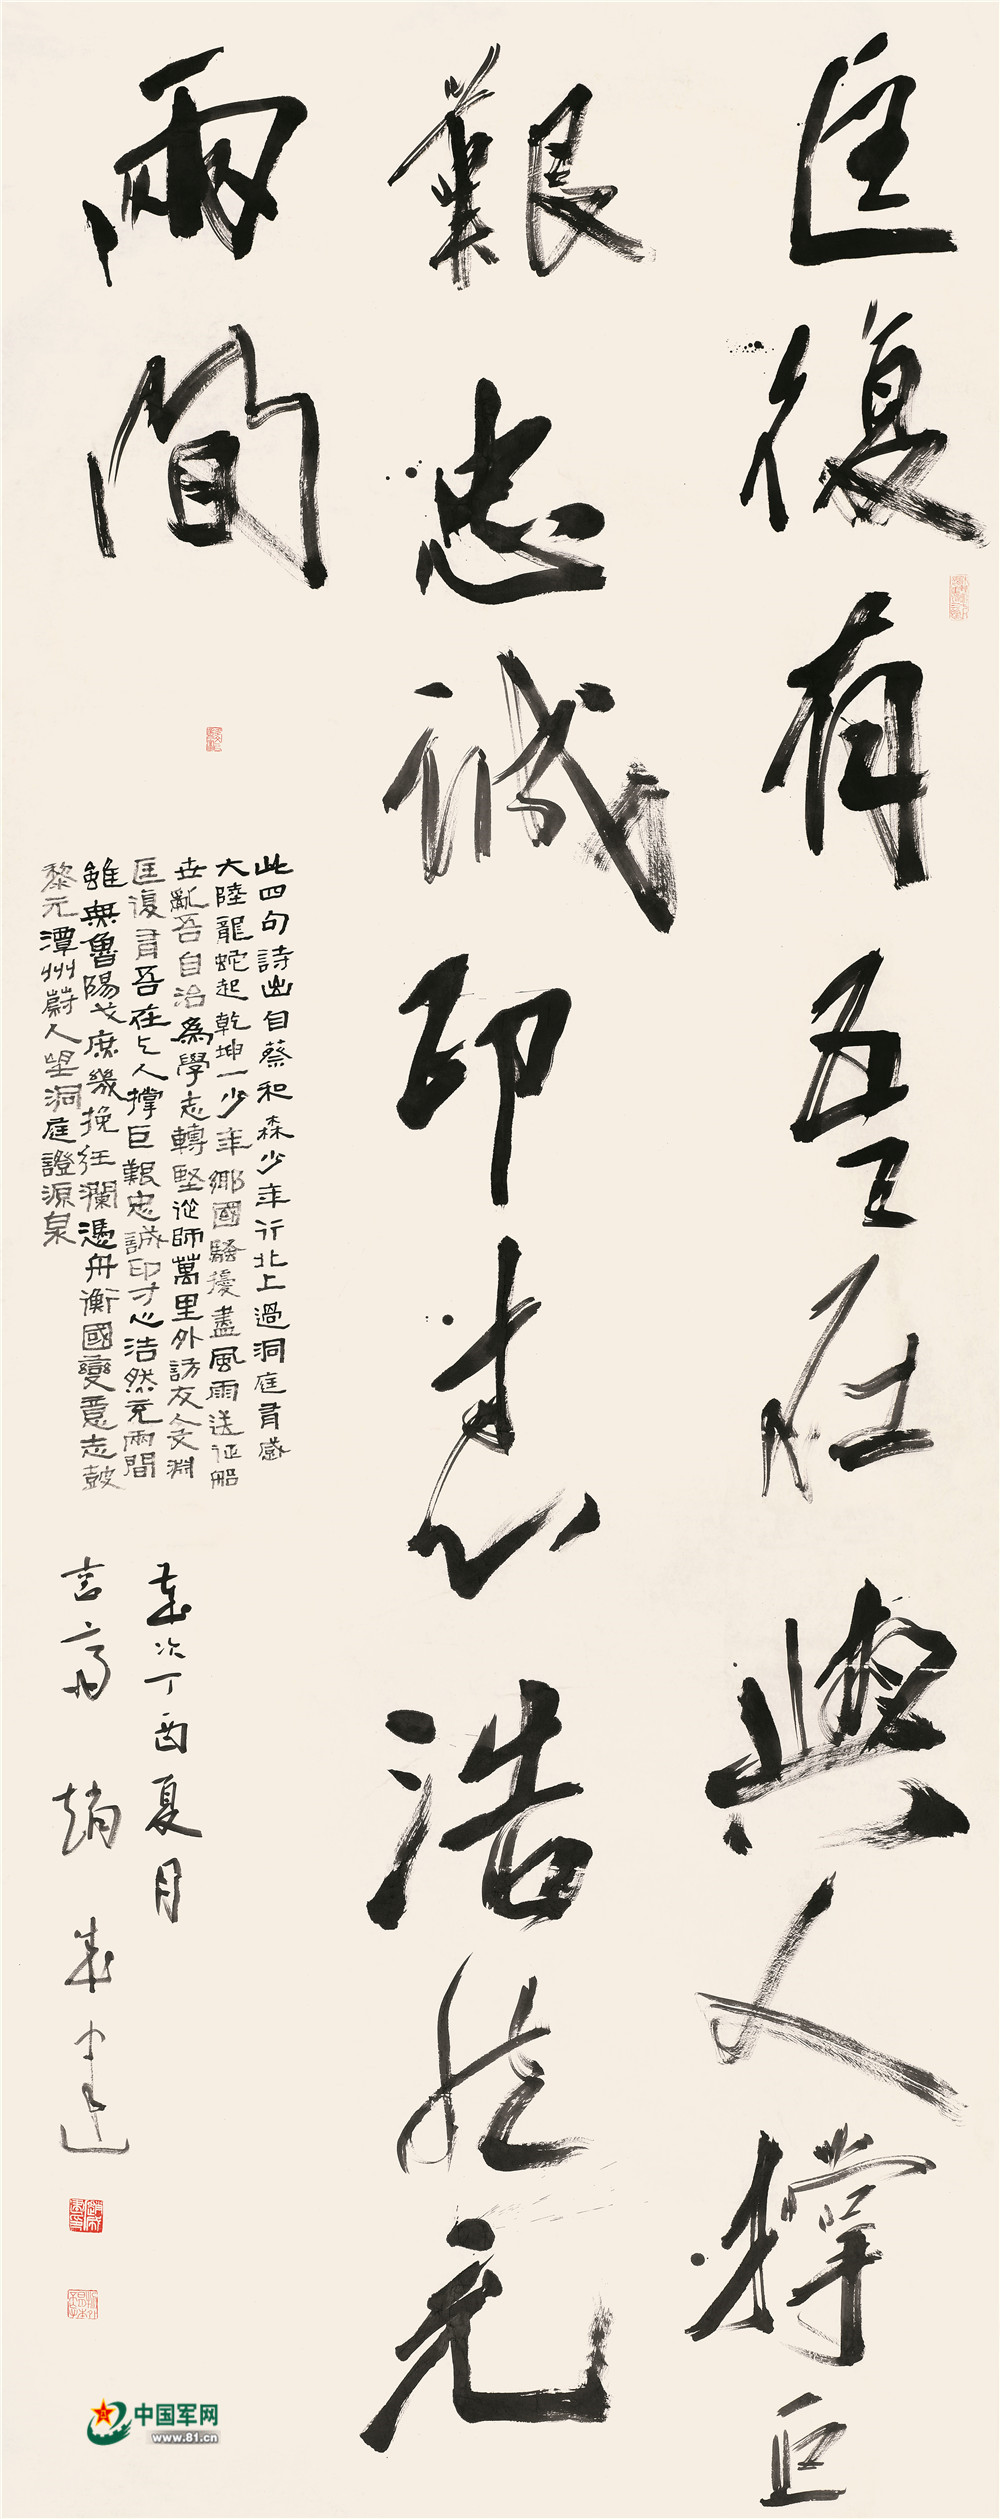 匡復有吾在與人撐巨
艱忠誠印寸心浩然充
兩間
此四句詩出自蔡和森少年行北上過洞庭有感
大陸龍蛇起乾坤一少年鄉國騷擾盡風雨送征船
世亂吾自治為學志轉堅從師萬里外訪友人文淵
匡復有吾在與人撐巨艱忠誠印寸心浩然充兩間
雖無魯陽戈庶幾挽狂瀾憑舟衡國變意志鼓
黎元潭州蔚人望洞庭證源泉
歲次丁酉夏月
言齋 趙成建
中国军网
www.81.cn